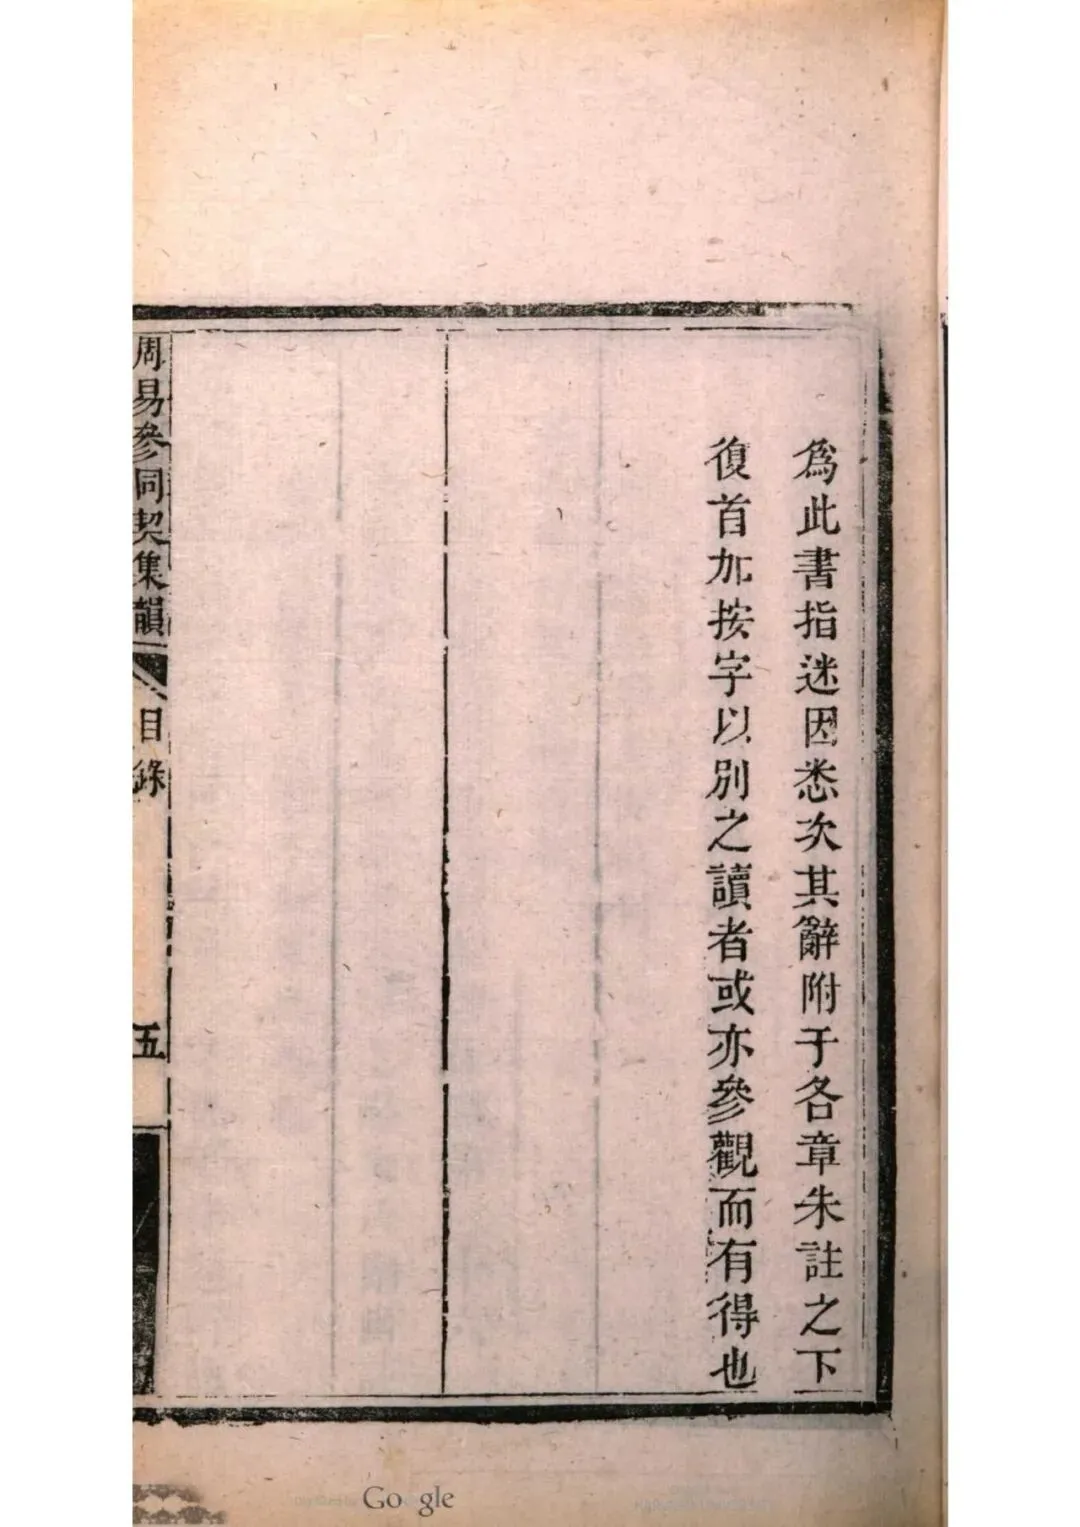 爲此書指迷因悉次其辭附于各章朱註之下
復首加按字以別之讀者或亦參觀而有得也
周易參同契集韻
目錄
五
Google